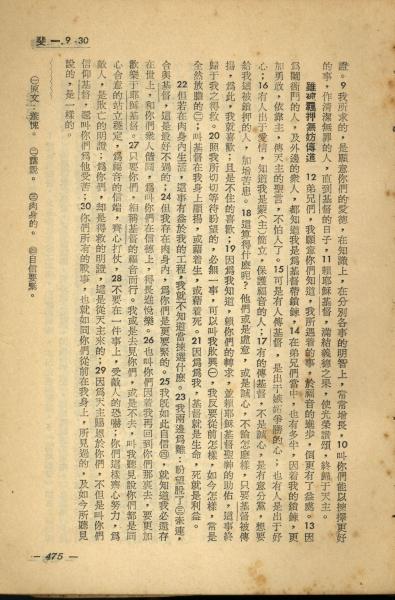 斐一 9-30
證。9 我所求的，是願意你們的愛德，在知識上，在分別各事的明智上，常常增長，10 叫你們能以揀擇更好
的事，作清潔無罪的人，直到基督的日子，11 賴耶穌基督，滿結義德之果，使光榮讚頌，終歸于天主。
雖被羈押無妨傳道 12 弟兄們，我願意你們知道，我所遇着的事，於福音的進步，倒更有了益處。13 因
爲闔衙門的人，及外邊的衆人，都知道我是爲基督帶鎖鍊，14 在弟兄們當中，也有多半，因着我的鎖鍊，更
加勇敢，依靠主，傳天主的聖言，不怕人了。15 可是有人傳基督，是出于嫉妬爭勝的心；也有人是出于好
心；16 有人出于愛情，知道我是蒙㊀簡立，保護福音的人；17 有的傳基督，不是誠心，是有意分黨，想要
給我這被鎖押的人，加增苦患。18 這算得什麼呢？他們或是虛意，或是誠心，不論怎麼樣，只要基督被傳
揚，爲此，我就喜歡；且是不住的喜歡；19 因爲我知道，賴你們的轉求，並賴耶穌基督聖神的助佑，這事終
歸于我之得救。20 照我所切切等待盼望的，必無一事，可以叫我敗興㊀，我反要從前怎樣，如今怎樣，常是
全然放膽的㊁；叫基督在我身上顯揚，或藉着生，或藉着死。21 因爲爲我，基督就是生命，死就是利益。
22 但若在肉身內生活，這事有益於我的工程，我就不知道當揀選什麼。23 我兩邊爲難：盼望脫了㊂牽連，
合與基督，這是好不過的；24 但我存在肉身內，爲你們是更要緊的。25 我旣如此自信㊃，就知道我必還存
在世上，和你們衆人偕同，爲叫你們在信德上，得長進悅樂。26 也叫你們因着我再回到你們那裏去，要更加
歡樂于耶穌基督。27 只要你們，相稱基督的福音而行。我或是去見你們，或是不去，叫我聽見說你們都是同
心合意的站立穩定，爲福音的信端，齊心打仗，28 不要在一件事上，受敵人的恐嚇；你們這樣齊心努力，爲
敵人，是敗亡的明證；爲你們，却是得救的明證，這是從天主來的；29 因爲天主賜恩於你們，不但是叫你們
信仰基督，還叫你們爲他受苦；30 你們所有的戰事，也就如同你們從前在我身上，所見過的，及如今所聽見
說的，是一樣的。
㊂肉身的。 ㊃自信要緊。
— 475 —